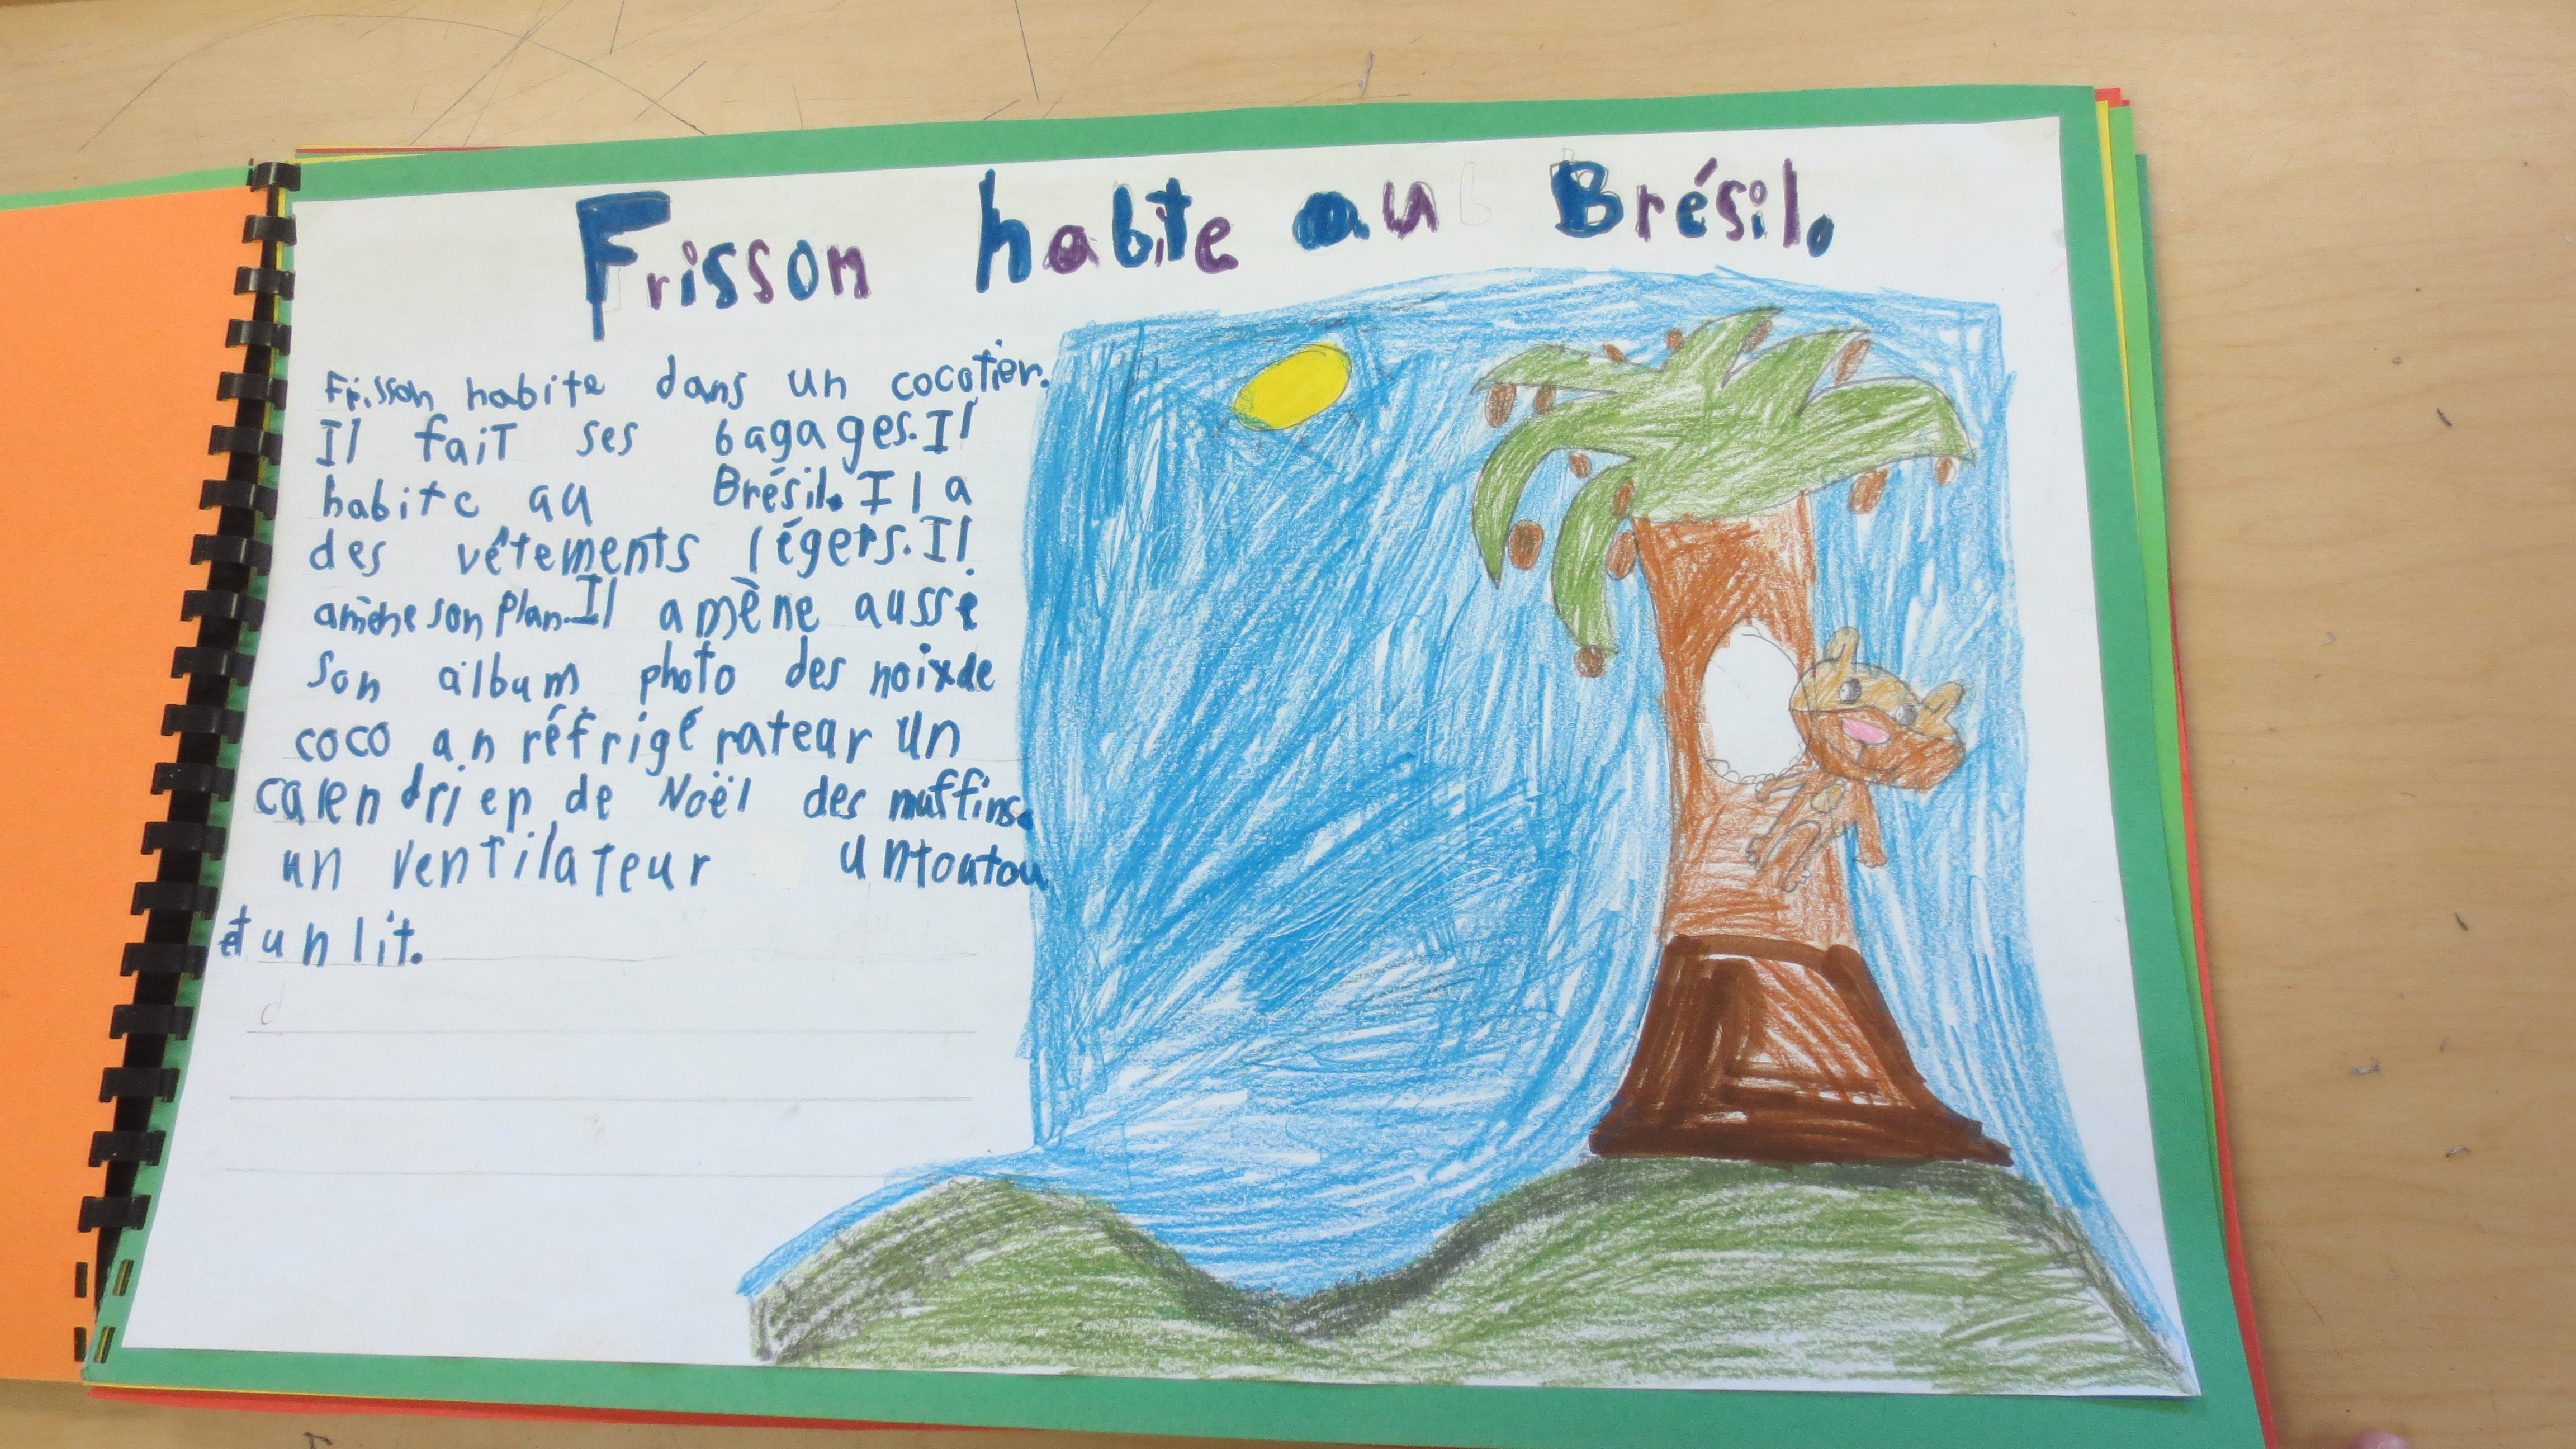 Frisson habite au Brésil.
Frisson habite dans un cocotier.
Il fait ses bagages. Il
habite au Brésil. Il a
des vêtements légers. Il
amène son plan. Il amène aussi
son album photo des noix de
coco un réfrigérateur un
calendrier de Noël des muffins.
un ventilateur un toutou
et un lit.